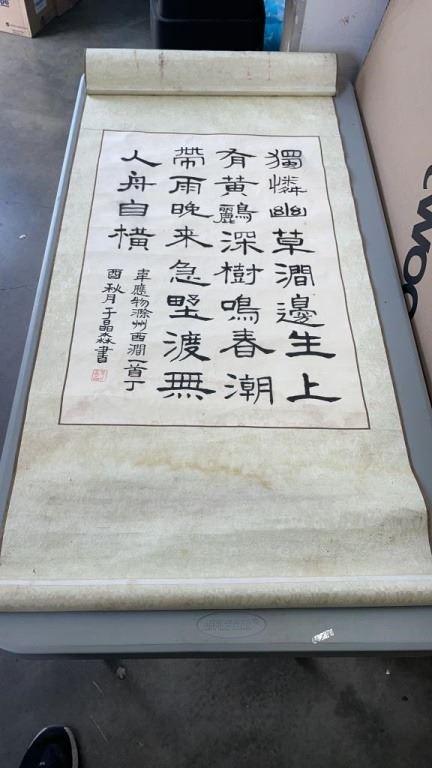 獨憐幽草澗邊生上
有黃鸝深樹鳴春潮
帶雨晚来急野渡無
人舟自橫
韋應物滁州西澗一首丁
酉秋月于晶淼書